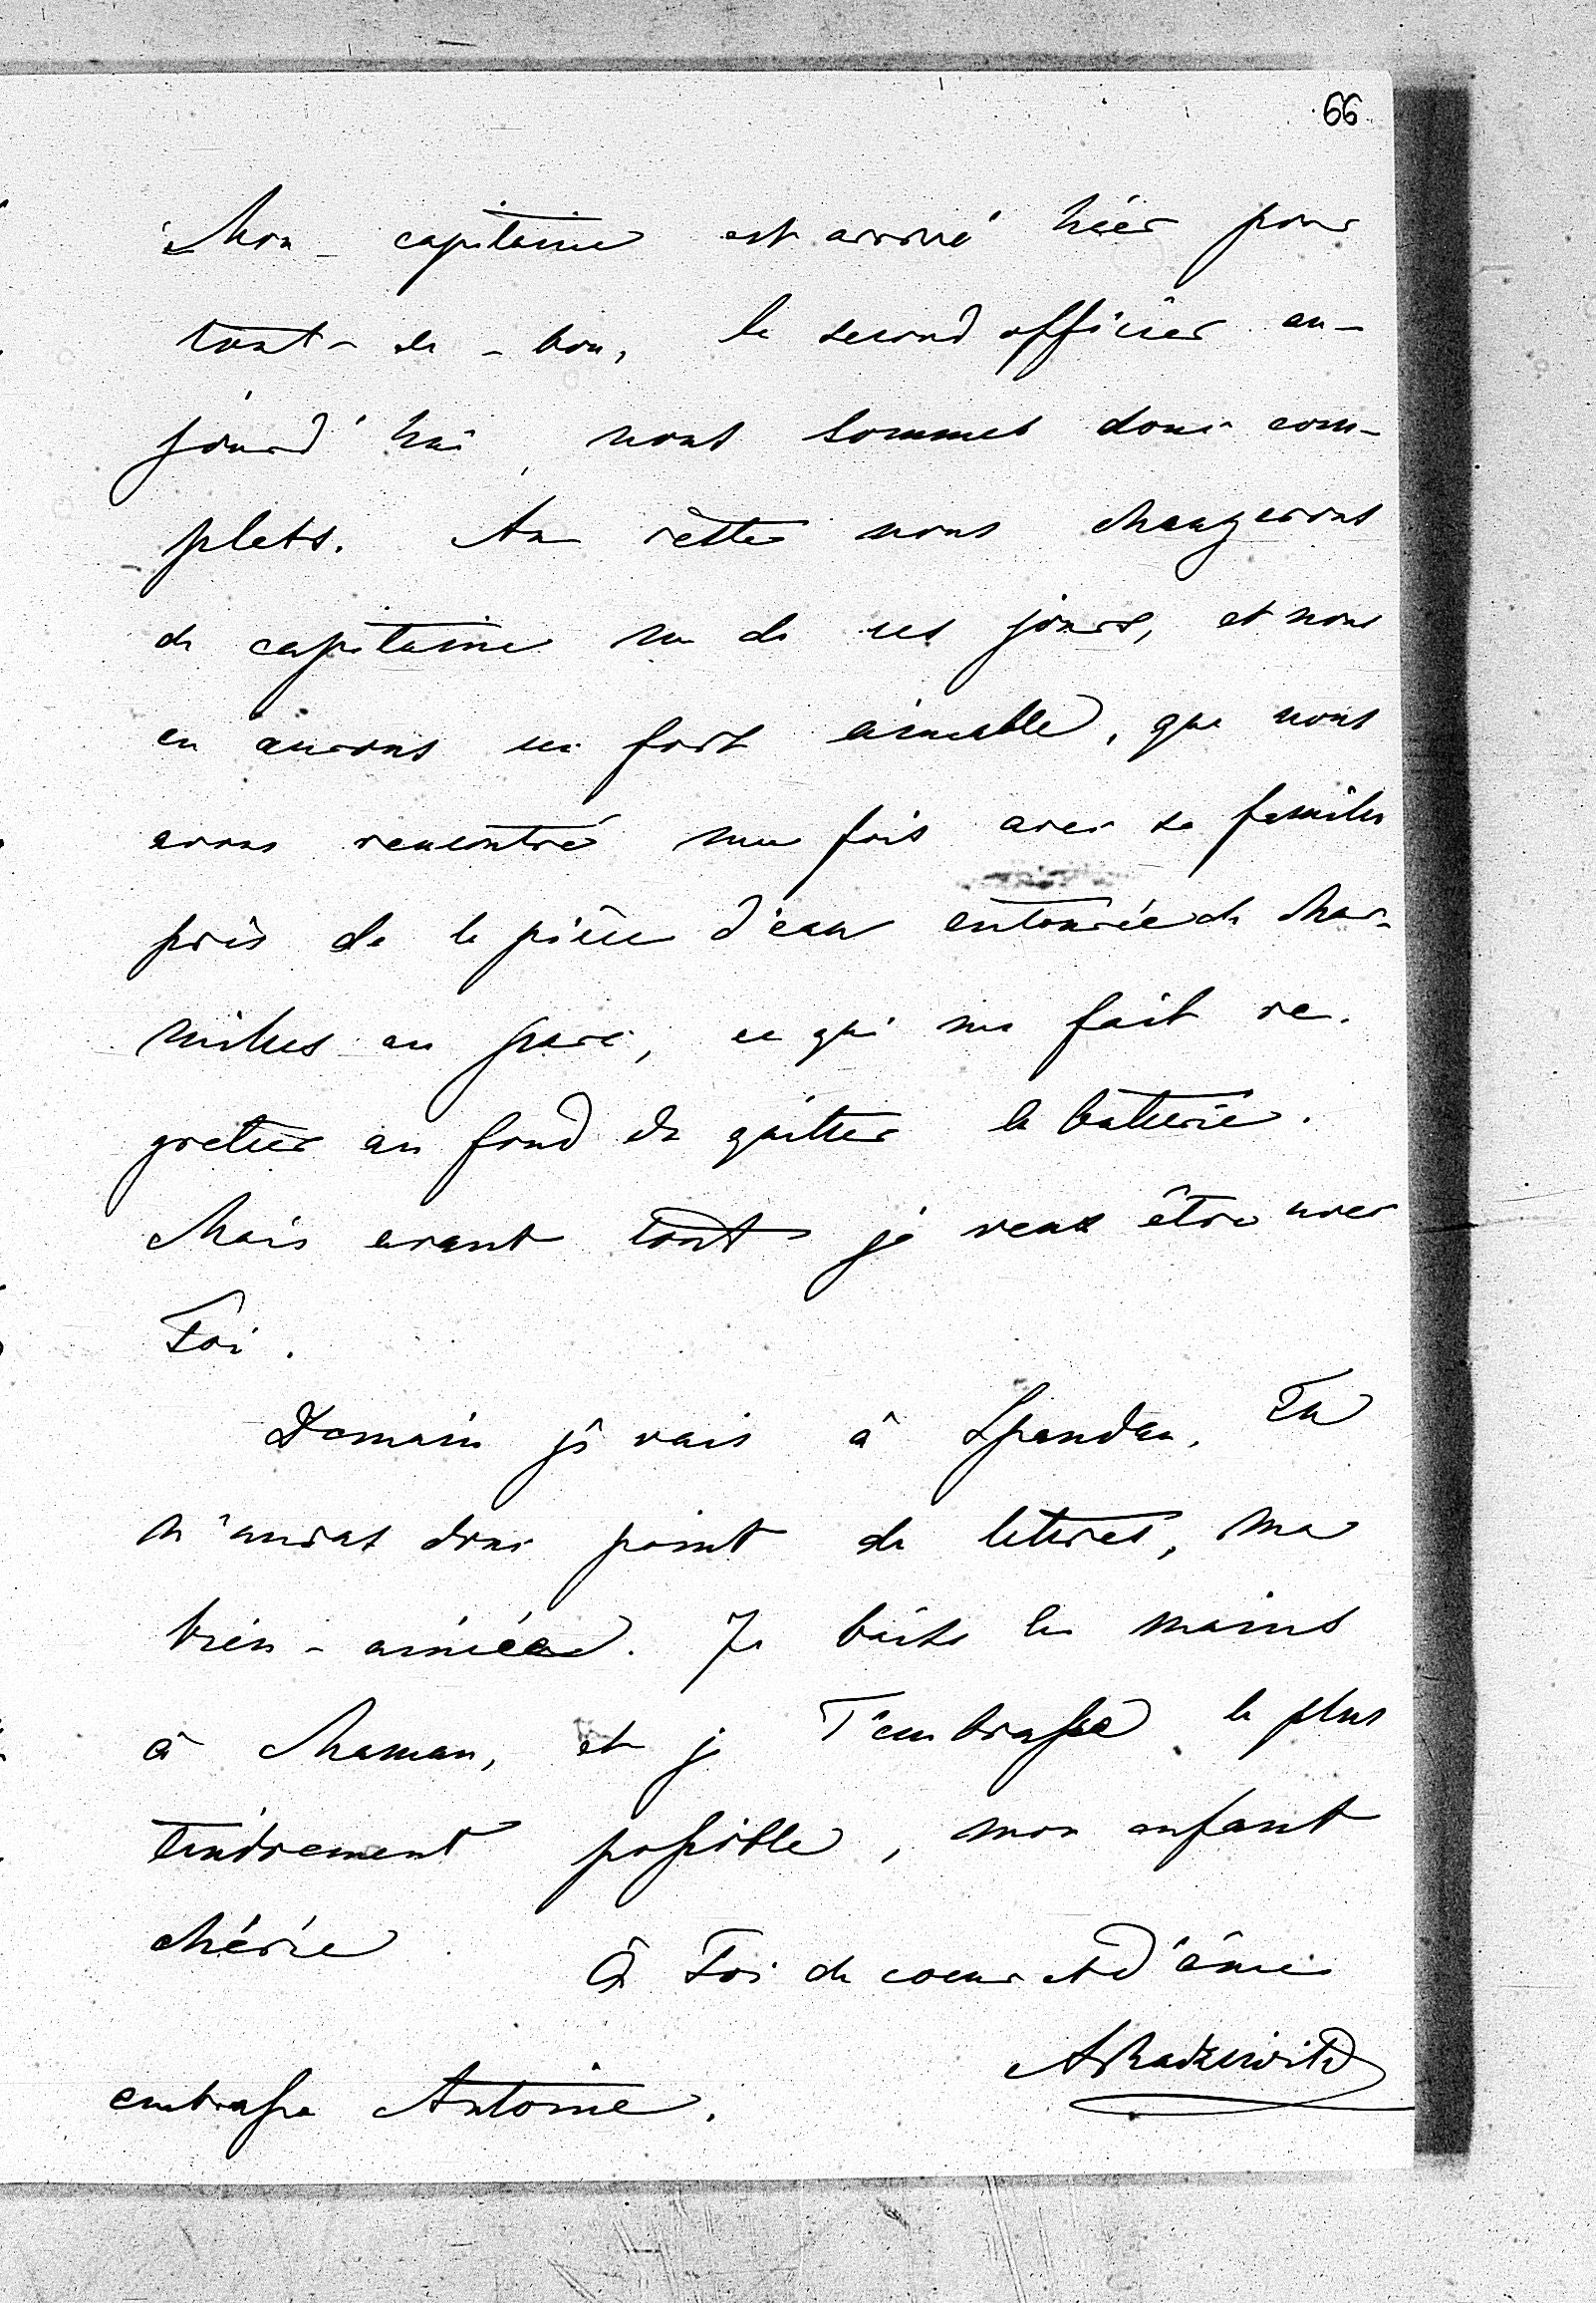 66
Mon capitaine est arrivé hier pour
tout-de-bon, le second officier au-
jourd'hui, nous sommes donc com-
plets. Au reste nous changerons
de capitaine un de ces jours, et nous
en aurons un fort aimable, que nous
avons rencontré une fois avec sa famille
près de la pièce d'eau entourée de char-
milles au parc, ce qui me fait re-
gretter au fond de quitter la batterie.
Mais avant tout je veux être avec
Toi.
Demain je vais à Spandau. Tu
n'auras donc point de lettres, ma
bien-aimée. Je baise les mains
à Maman, et je T'embrasse le plus
tendrement possible, mon enfant
chérie
à Toi de coeur et d'âme
ARadziwill
embrasse Antoine.